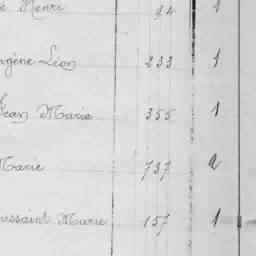 Henri 94 1
Eugène Léon 233 1
Jean Marie 355 1
Marie 737 2
Toussaint Marie 157 1